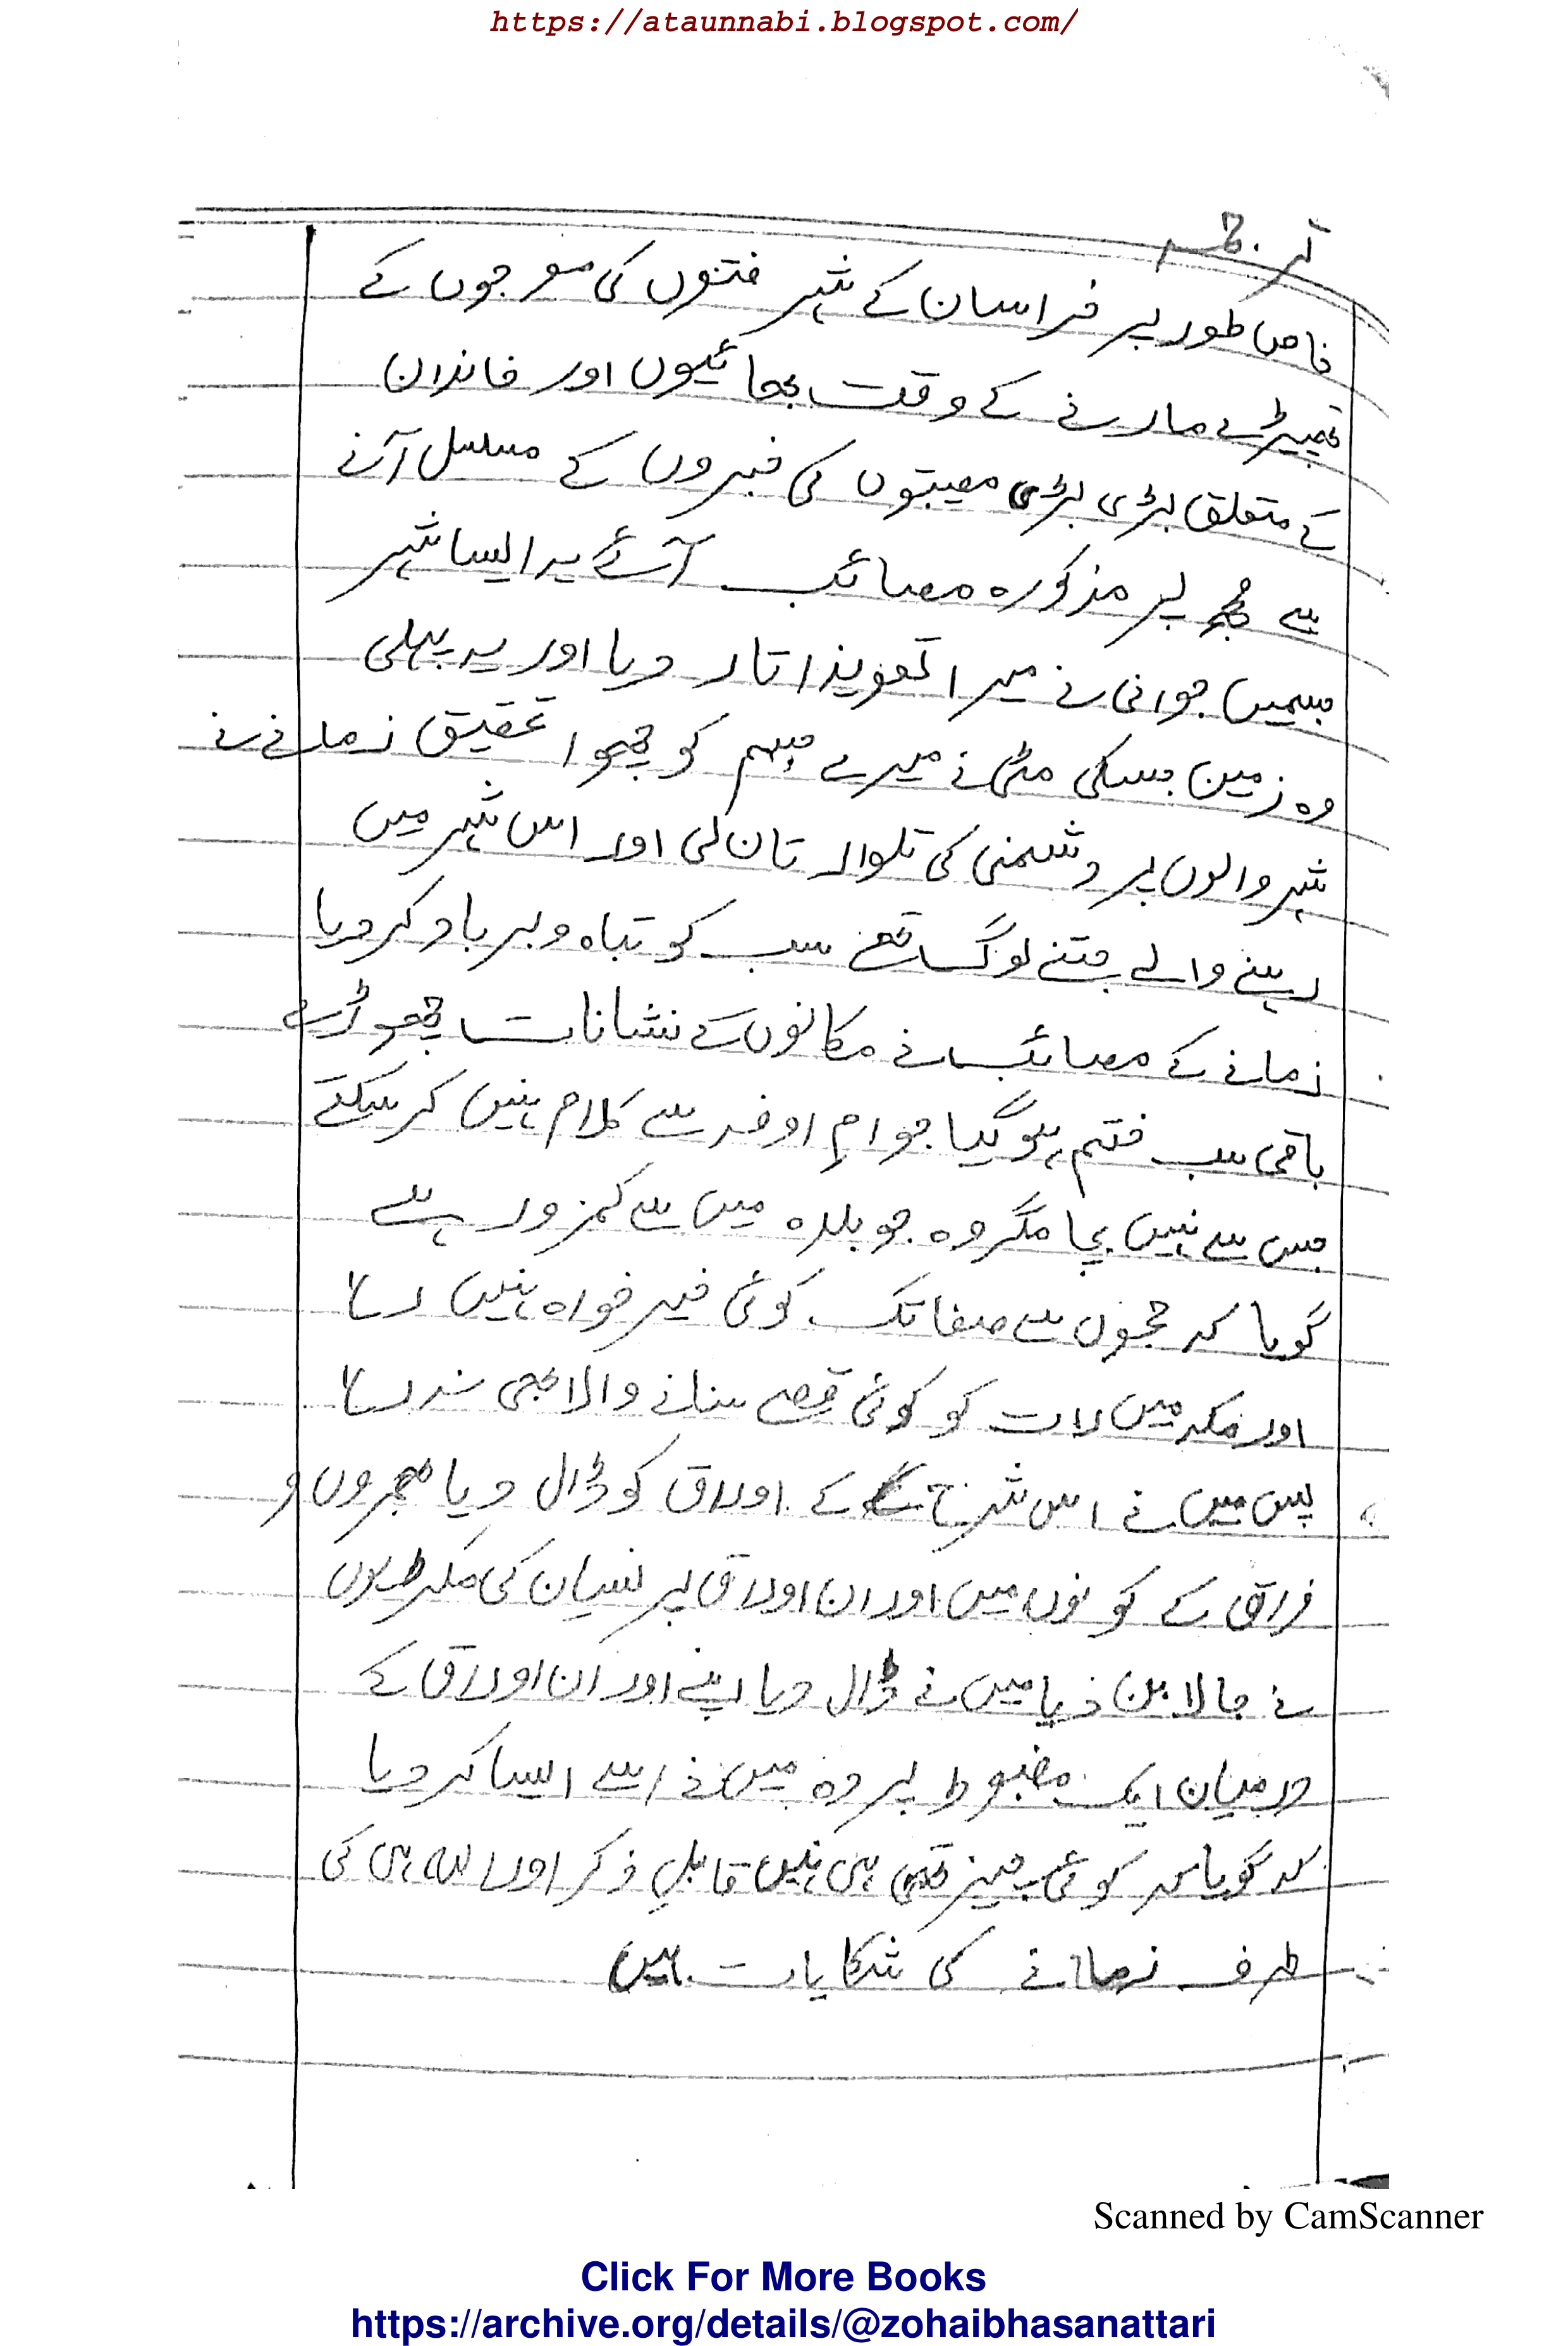 https://ataunnabi.blogspot.com/
ترجمہ
خاص طور پر خراسان کے شہر فتنوں کی موجوں کے
تھپیڑے مارنے کے وقت بھائیوں اور خاندان
کے متعلق بڑی بڑی مصیبتوں کی خبروں کے مسلسل آنے
سے مجھ پر مذکورہ مصائب آئے یہ ایسا شہر
جسمیں جوانی نے میرا تعویذ اتار دیا اور یہ پہلی
وہ زمین جسکی مٹی نے میرے جسم کو چھوا تحقیق زمانے نے
شہر والوں پر دشمنی کی تلوار تان لی اور اس شہر میں
رہنے والے جتنے لوگ تھے سب کو تباہ و برباد کر دیا
زمانے کے مصائب نے مکانوں کے نشانات چھوڑے
باقی سب ختم ہو گیا جو امِ اوفہ سے کلام نہیں کر سکتے
جس سے نہیں بچا مگر وہ جو بلدہ میں سے کمزور ہے
گویا کہ حجون سے صفا تک کوئی خیر خواہ نہیں رہا
اور مکہ میں رات کو کوئی قصے سنانے والا بھی نہ رہا
پس میں نے اس شرح کے اوراق کو ڈال دیا ہجروں و
فراق کے کونوں میں اور ان اوراق پر نسیان کی مکڑیوں
نے جالا بن دیا میں نے ڈال دیا اپنے اور ان اوراق کے
درمیان ایک مضبوط پردہ میں نے اسے ایسا کر دیا
کہ گویا کہ کوئی چیز تھی ہی نہیں قابلِ ذکر اور اللہ ہی کی
طرف زمانے کی شکایات ہیں
Scanned by CamScanner
Click For More Books
https://archive.org/details/@zohaibhasanattari